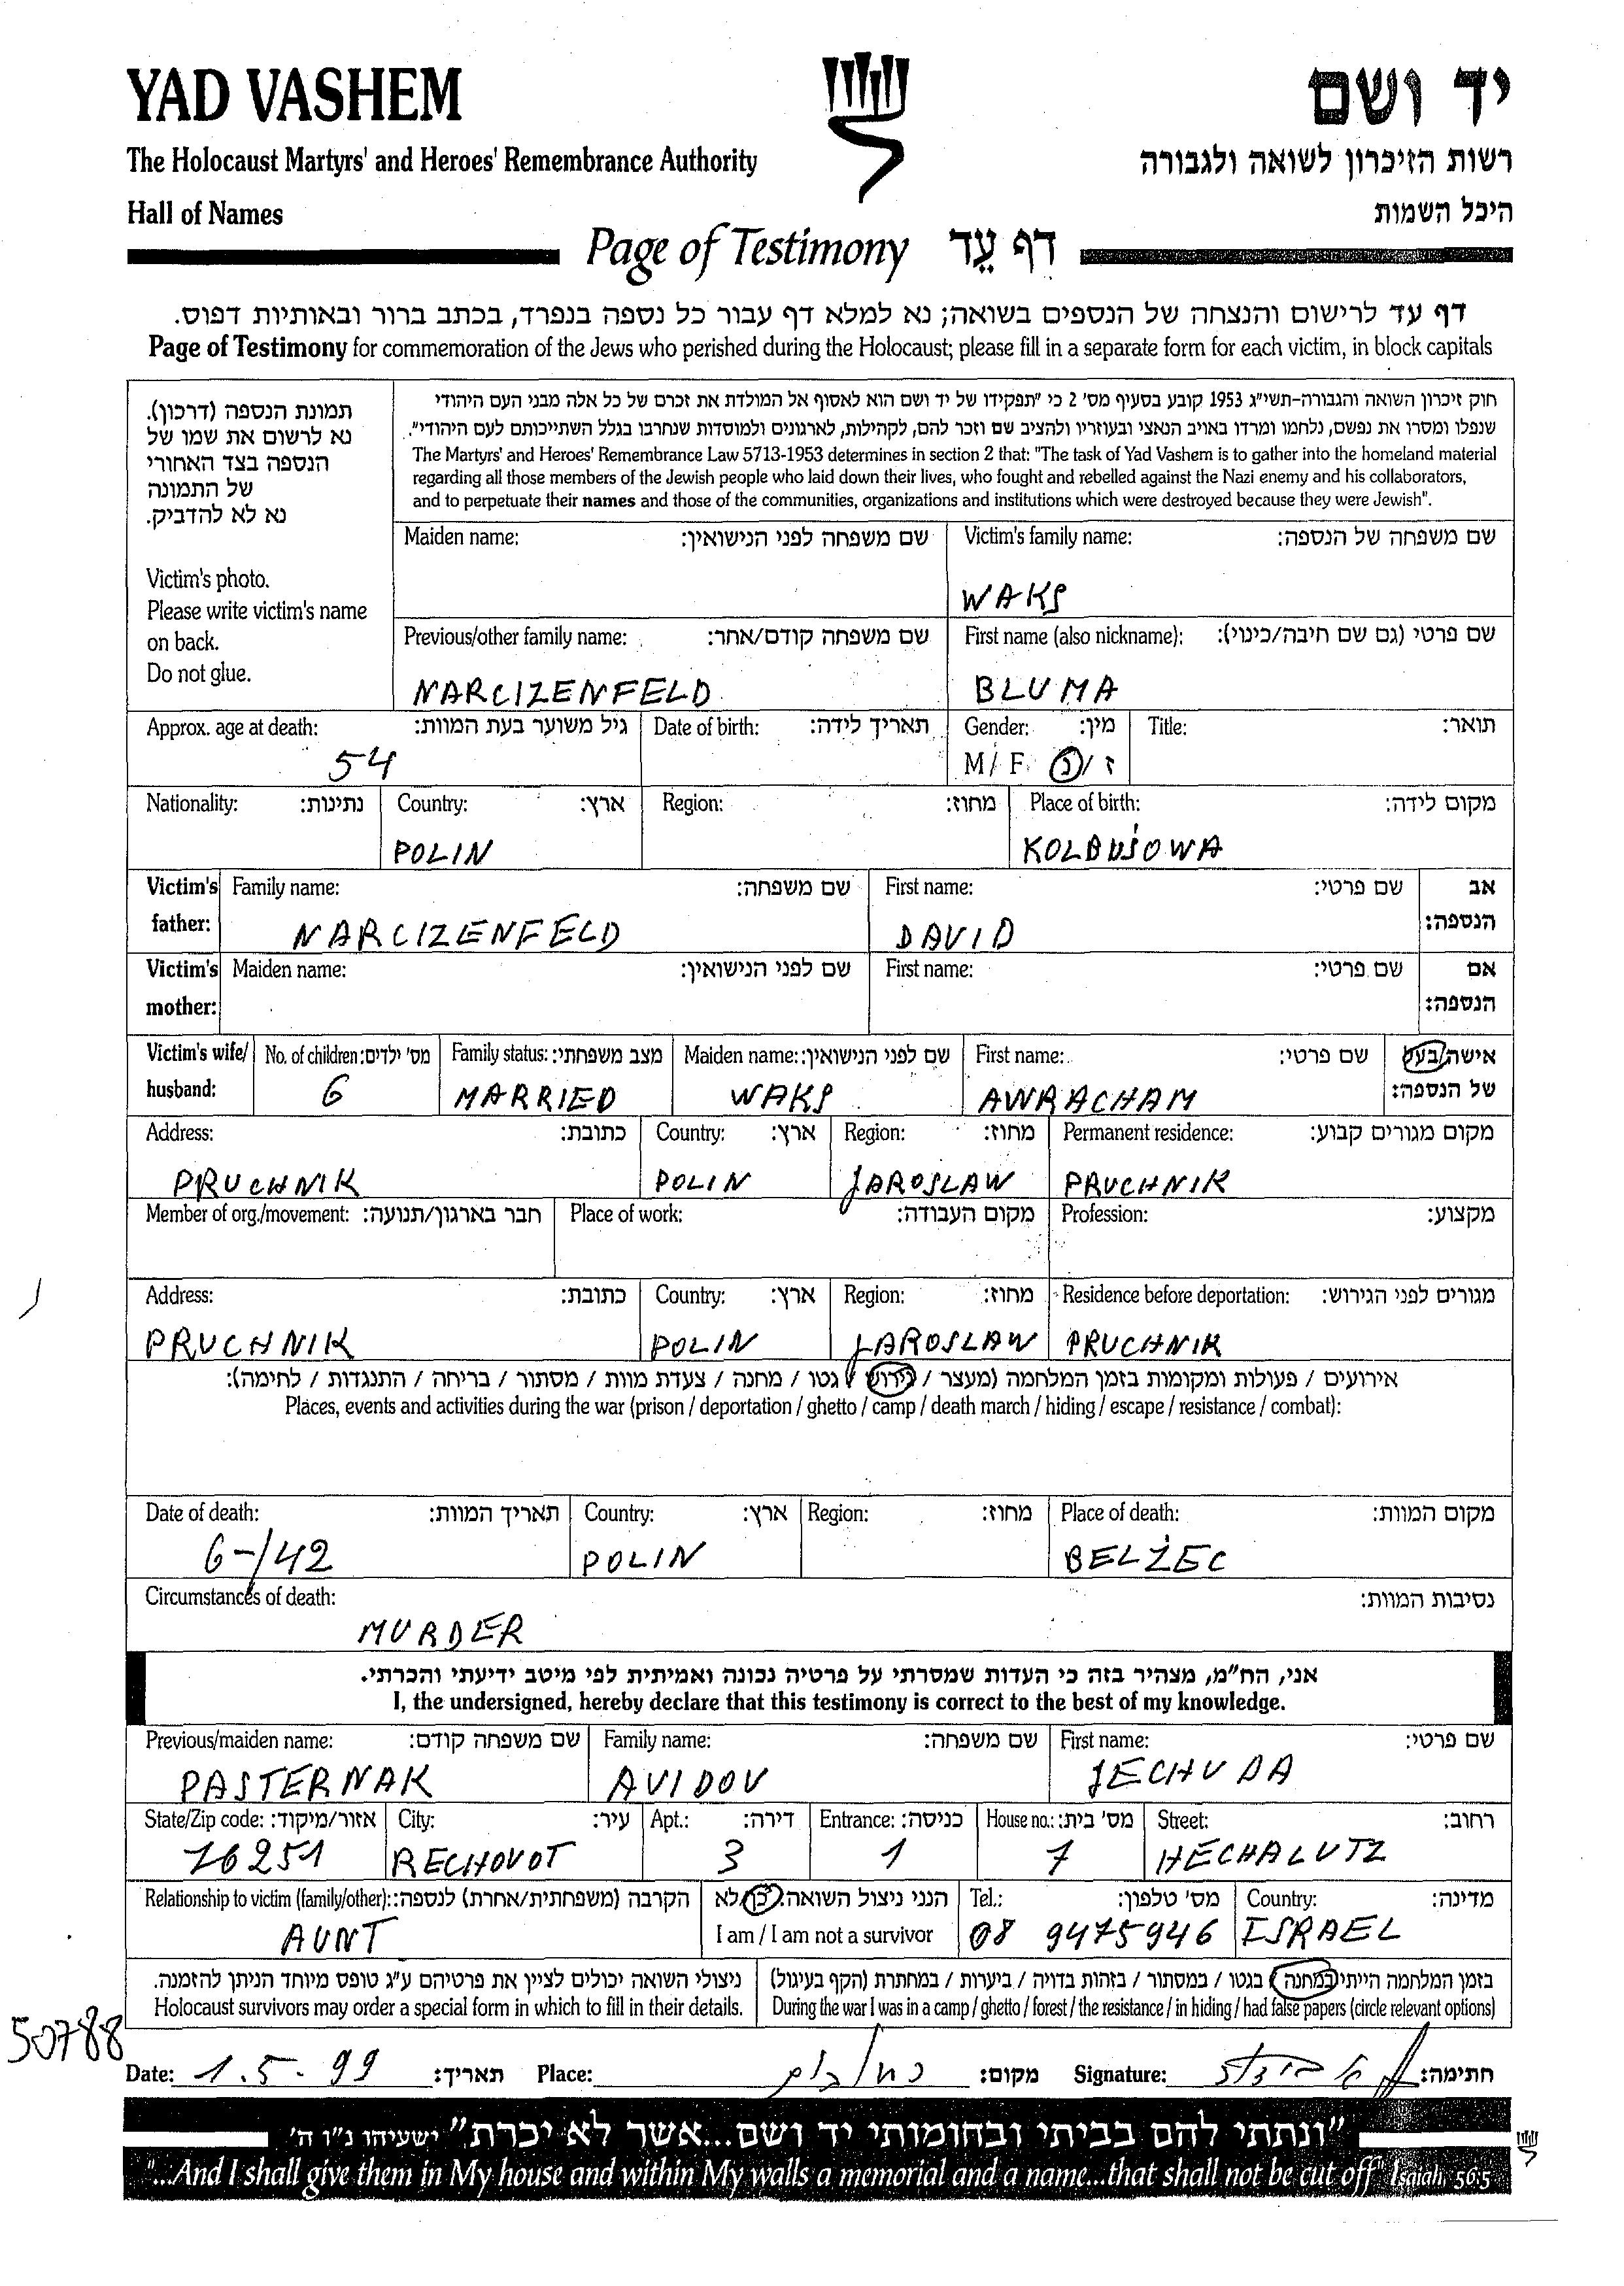 YAD VASHEM
יד ושם
The Holocaust Martyrs' and Heroes' Remembrance Authority
רשות הזיכרון לשואה ולגבורה
Hall of Names
היכל השמות
Page of Testimony דף עֵד
דף עד לרישום והנצחה של הנספים בשואה; נא למלא דף עבור כל נספה בנפרד, בכתב ברור ובאותיות דפוס.
Page of Testimony for commemoration of the Jews who perished during the Holocaust; please fill in a separate form for each victim, in block capitals
תמונת הנספה (דרכון).
נא לרשום את שמו של
הנספה בצד האחורי
של התמונה
נא לא להדביק.
Victim's photo.
Please write victim's name
on back.
Do not glue.
חוק זיכרון השואה והגבורה-תשי"ג 1953 קובע בסעיף מס' 2 כי "תפקידו של יד ושם הוא לאסוף אל המולדת את זכרם של כל אלה מבני העם היהודי
שנפלו ומסרו את נפשם, נלחמו ומרדו באויב הנאצי ובעוזריו ולהציב שם וזכר להם, לקהילות, לארגונים ולמוסדות שנחרבו בגלל השתייכותם לעם היהודי".
The Martyrs' and Heroes' Remembrance Law 5713-1953 determines in section 2 that: "The task of Yad Vashem is to gather into the homeland material
regarding all those members of the Jewish people who laid down their lives, who fought and rebelled against the Nazi enemy and his collaborators,
and to perpetuate their names and those of the communities, organizations and institutions which were destroyed because they were Jewish".
Maiden name: שם משפחה לפני הנישואין:
Victim's family name: שם משפחה של הנספה:
WAKS
Previous/other family name: שם משפחה קודם/אחר:
First name (also nickname): שם פרטי (גם שם חיבה/כינוי):
NARCIZENFELD
BLUMA
Approx. age at death: גיל משוער בעת המוות:
Date of birth: תאריך לידה:
Gender: מין:
Title: תואר:
54
M/ F ז /נ
Nationality: נתינות:
Country: ארץ:
Region: מחוז:
Place of birth: מקום לידה:
POLIN
KOLBUSOWA
Victim's father: Family name: שם משפחה:
First name: שם פרטי:
אב הנספה:
NARCIZENFELD
DAVID
Victim's mother: Maiden name: שם לפני הנישואין:
First name: שם פרטי:
אם הנספה:
Victim's wife/ husband: No. of children: מס' ילדים:
Family status: מצב משפחתי:
Maiden name: שם לפני הנישואין:
First name: שם פרטי:
אישה/בעל של הנספה:
6
MARRIED
WAKS
AWRACHAM
Address: כתובת:
Country: ארץ:
Region: מחוז:
Permanent residence: מקום מגורים קבוע:
PRUCHNIK
POLIN
JAROSLAW
PRUCHNIK
Member of org./movement: חבר בארגון/תנועה:
Place of work: מקום העבודה:
Profession: מקצוע:
Address: כתובת:
Country: ארץ:
Region: מחוז:
Residence before deportation: מגורים לפני הגירוש:
PRUCHNIK
POLIN
JAROSLAW
PRUCHNIK
אירועים / פעולות ומקומות בזמן המלחמה (מעצר / גירוש / גטו / מחנה / צעדת מוות / מסתור / בריחה / התנגדות / לחימה):
Places, events and activities during the war (prison / deportation / ghetto / camp / death march / hiding / escape / resistance / combat):
Date of death: תאריך המוות:
Country: ארץ:
Region: מחוז:
Place of death: מקום המוות:
6-/42
POLIN
BELŻEC
Circumstances of death: נסיבות המוות:
MURDER
אני, הח"מ, מצהיר בזה כי העדות שמסרתי על פרטיה נכונה ואמיתית לפי מיטב ידיעתי והכרתי.
I, the undersigned, hereby declare that this testimony is correct to the best of my knowledge.
Previous/maiden name: שם משפחה קודם:
Family name: שם משפחה:
First name: שם פרטי:
PASTERNAK
AVIDOV
JECHUDA
State/Zip code: אזור/מיקוד:
City: עיר:
Apt.: דירה:
Entrance: כניסה:
House no.: מס' בית:
Street: רחוב:
76251
RECHOVOT
3
1
7
HECHALUTZ
Relationship to victim (family/other): הקרבה (משפחתית/אחרת) לנספה:
הנני ניצול השואה: כן/לא
Tel.: מס' טלפון:
Country: מדינה:
AUNT
I am / I am not a survivor
08 9475946
ISRAEL
ניצולי השואה יכולים לציין את פרטיהם ע"ג טופס מיוחד הניתן להזמנה.
Holocaust survivors may order a special form in which to fill in their details.
בזמן המלחמה הייתי במחנה / בגטו / במסתור / בזהות בדויה / ביערות / במחתרת (הקף בעיגול)
During the war I was in a camp / ghetto / forest / the resistance / in hiding / had false papers (circle relevant options)
50788
Date: 1.5.99 תאריך: Place: מקום: Signature: חתימה:
"ונתתי להם בביתי ובחומותי יד ושם...אשר לא יכרת" ישעיהו נ"ו ה'
"...And I shall give them in My house and within My walls a memorial and a name...that shall not be cut off" Isaiah 56:5